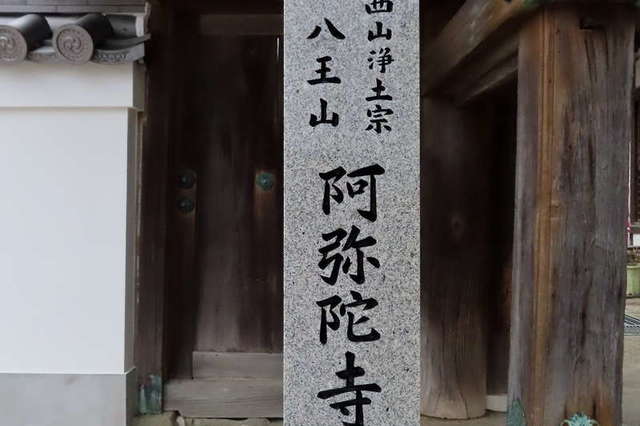 西山浄土宗
八王山
阿弥陀寺